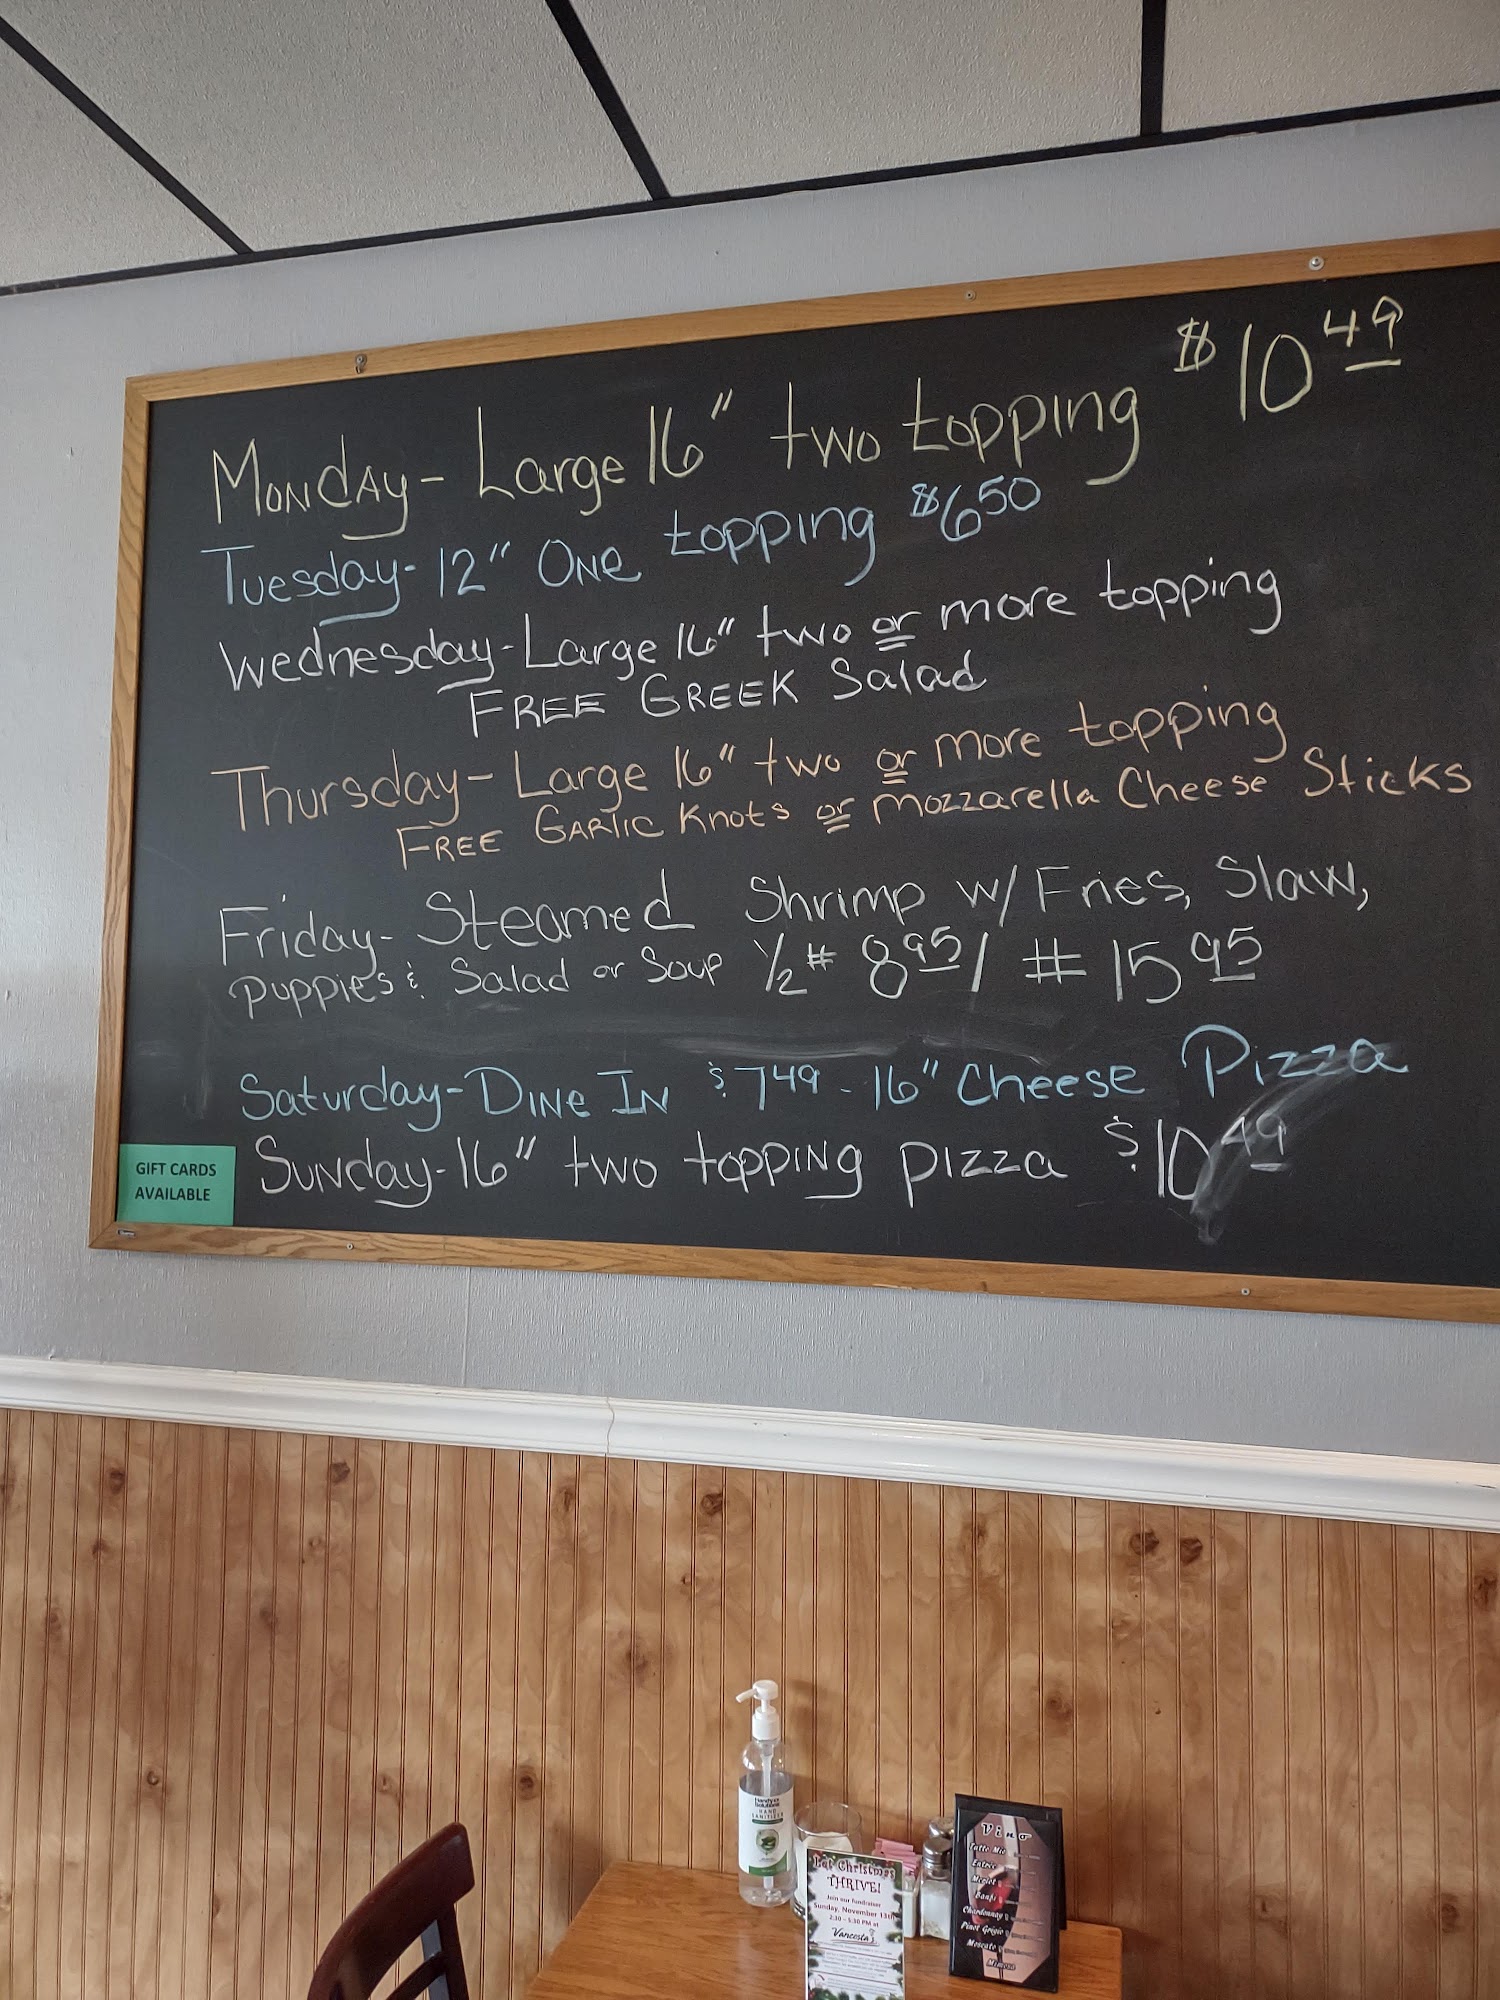 Monday - Large 16" two topping $10 49
Tuesday - 12" One topping $6 50
Wednesday - Large 16" two or more topping
FREE GREEK Salad
Thursday - Large 16" two or more topping
FREE GARLIC Knots or Mozzarella Cheese Sticks
Friday - Steamed Shrimp w/ Fries, Slaw,
puppies & Salad or Soup 1/2 # 8 95 / # 15 95
Saturday - DINE IN $7 49 - 16" Cheese Pizza
Sunday - 16" two topping pizza $10 49
GIFT CARDS
AVAILABLE
HAND
SANITIZER
Let Christmas
THRIVE!
Join our fundraiser
Sunday, November 13th
2:30 - 5:30 PM at
Vino
Merlot
Chardonnay
Pinot Grigio
Moscato
Mimosa